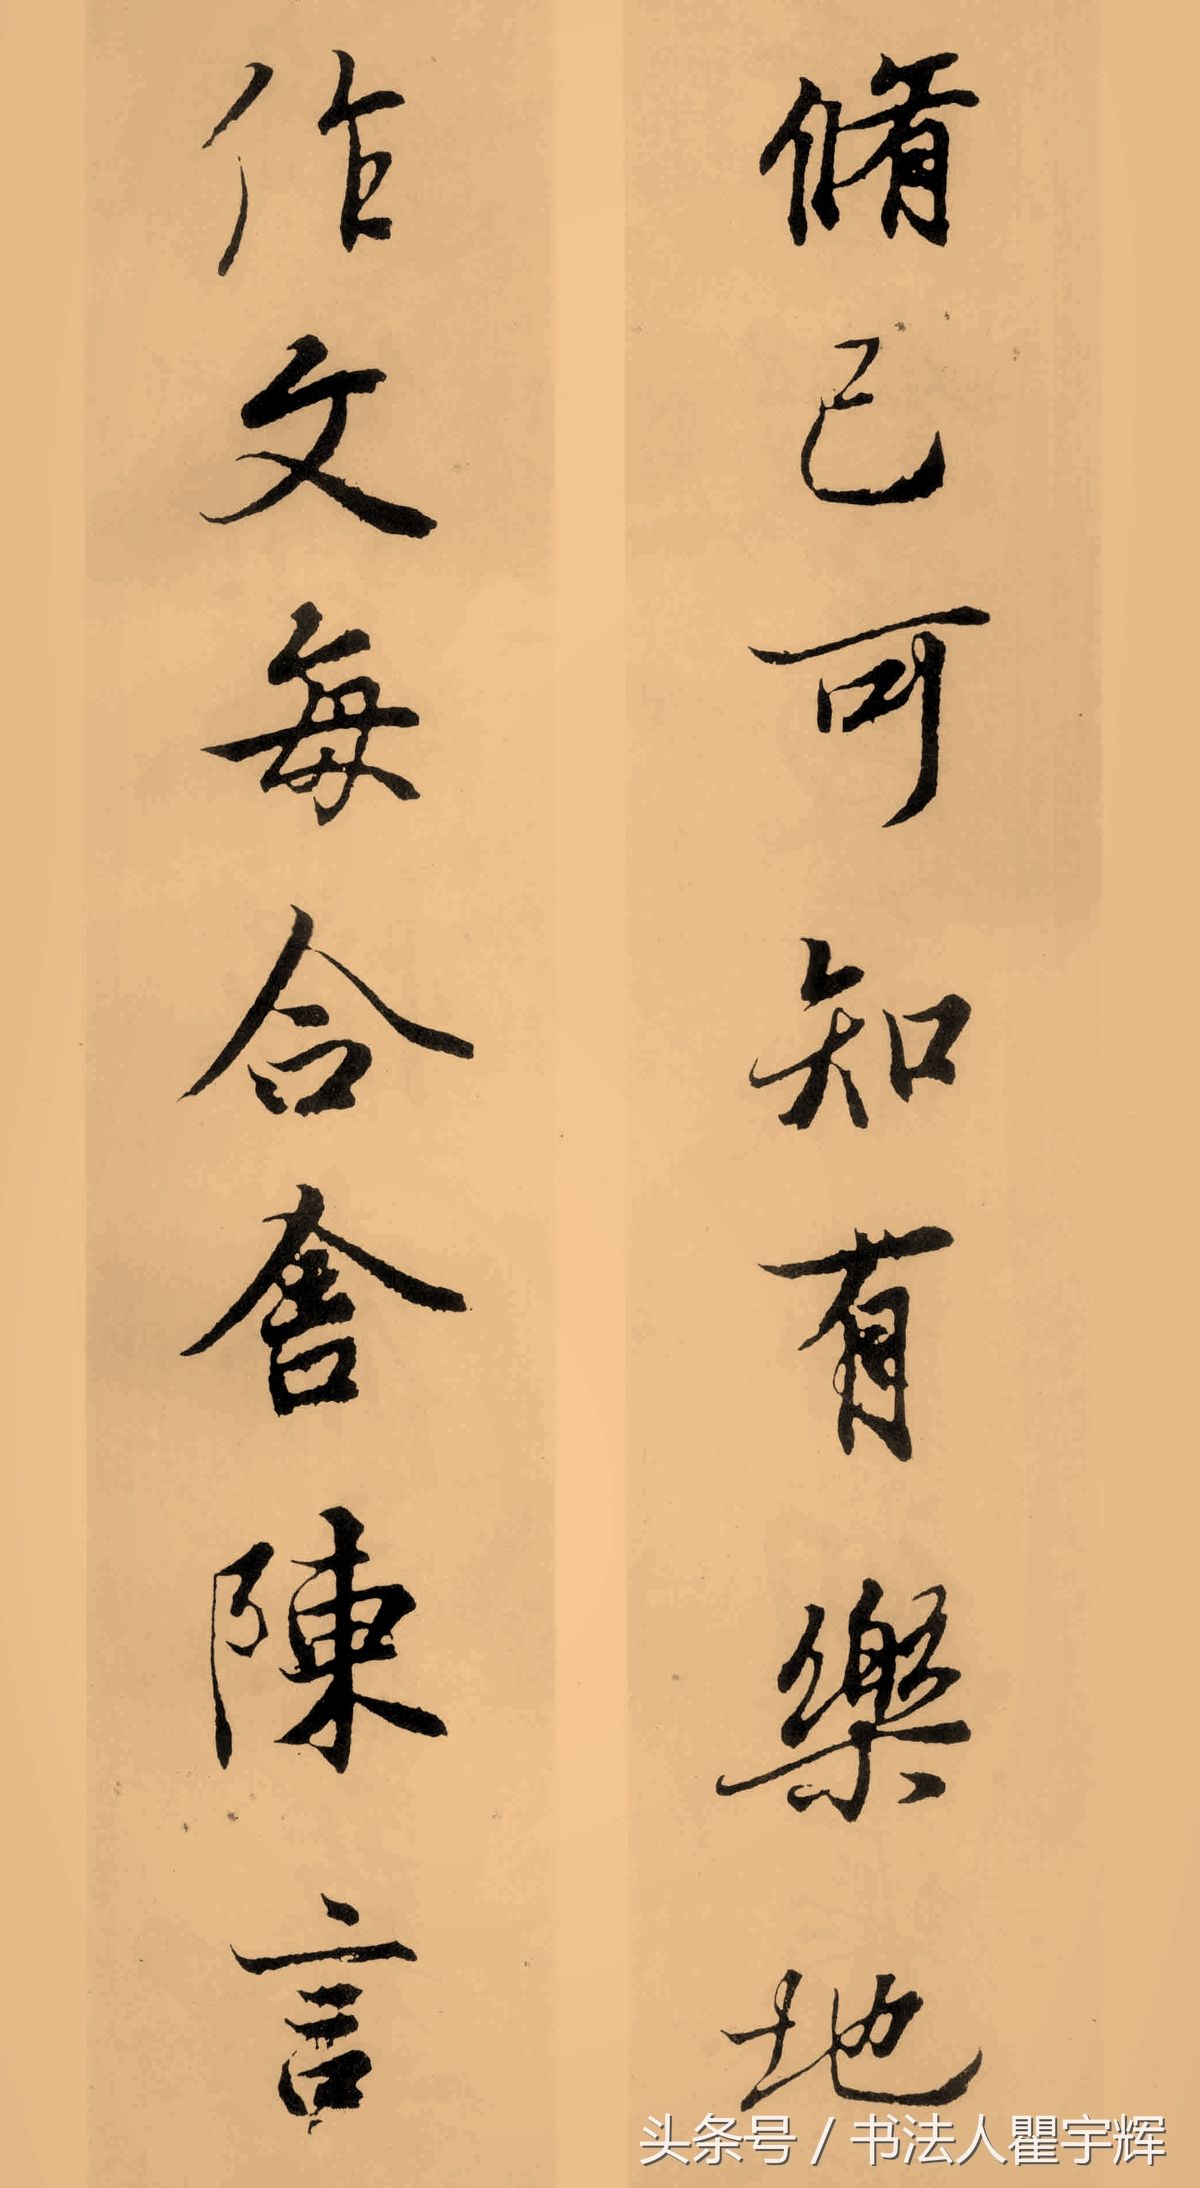 脩己可知有樂地
作文每合舍陳言
头条号 / 书法人瞿宇辉